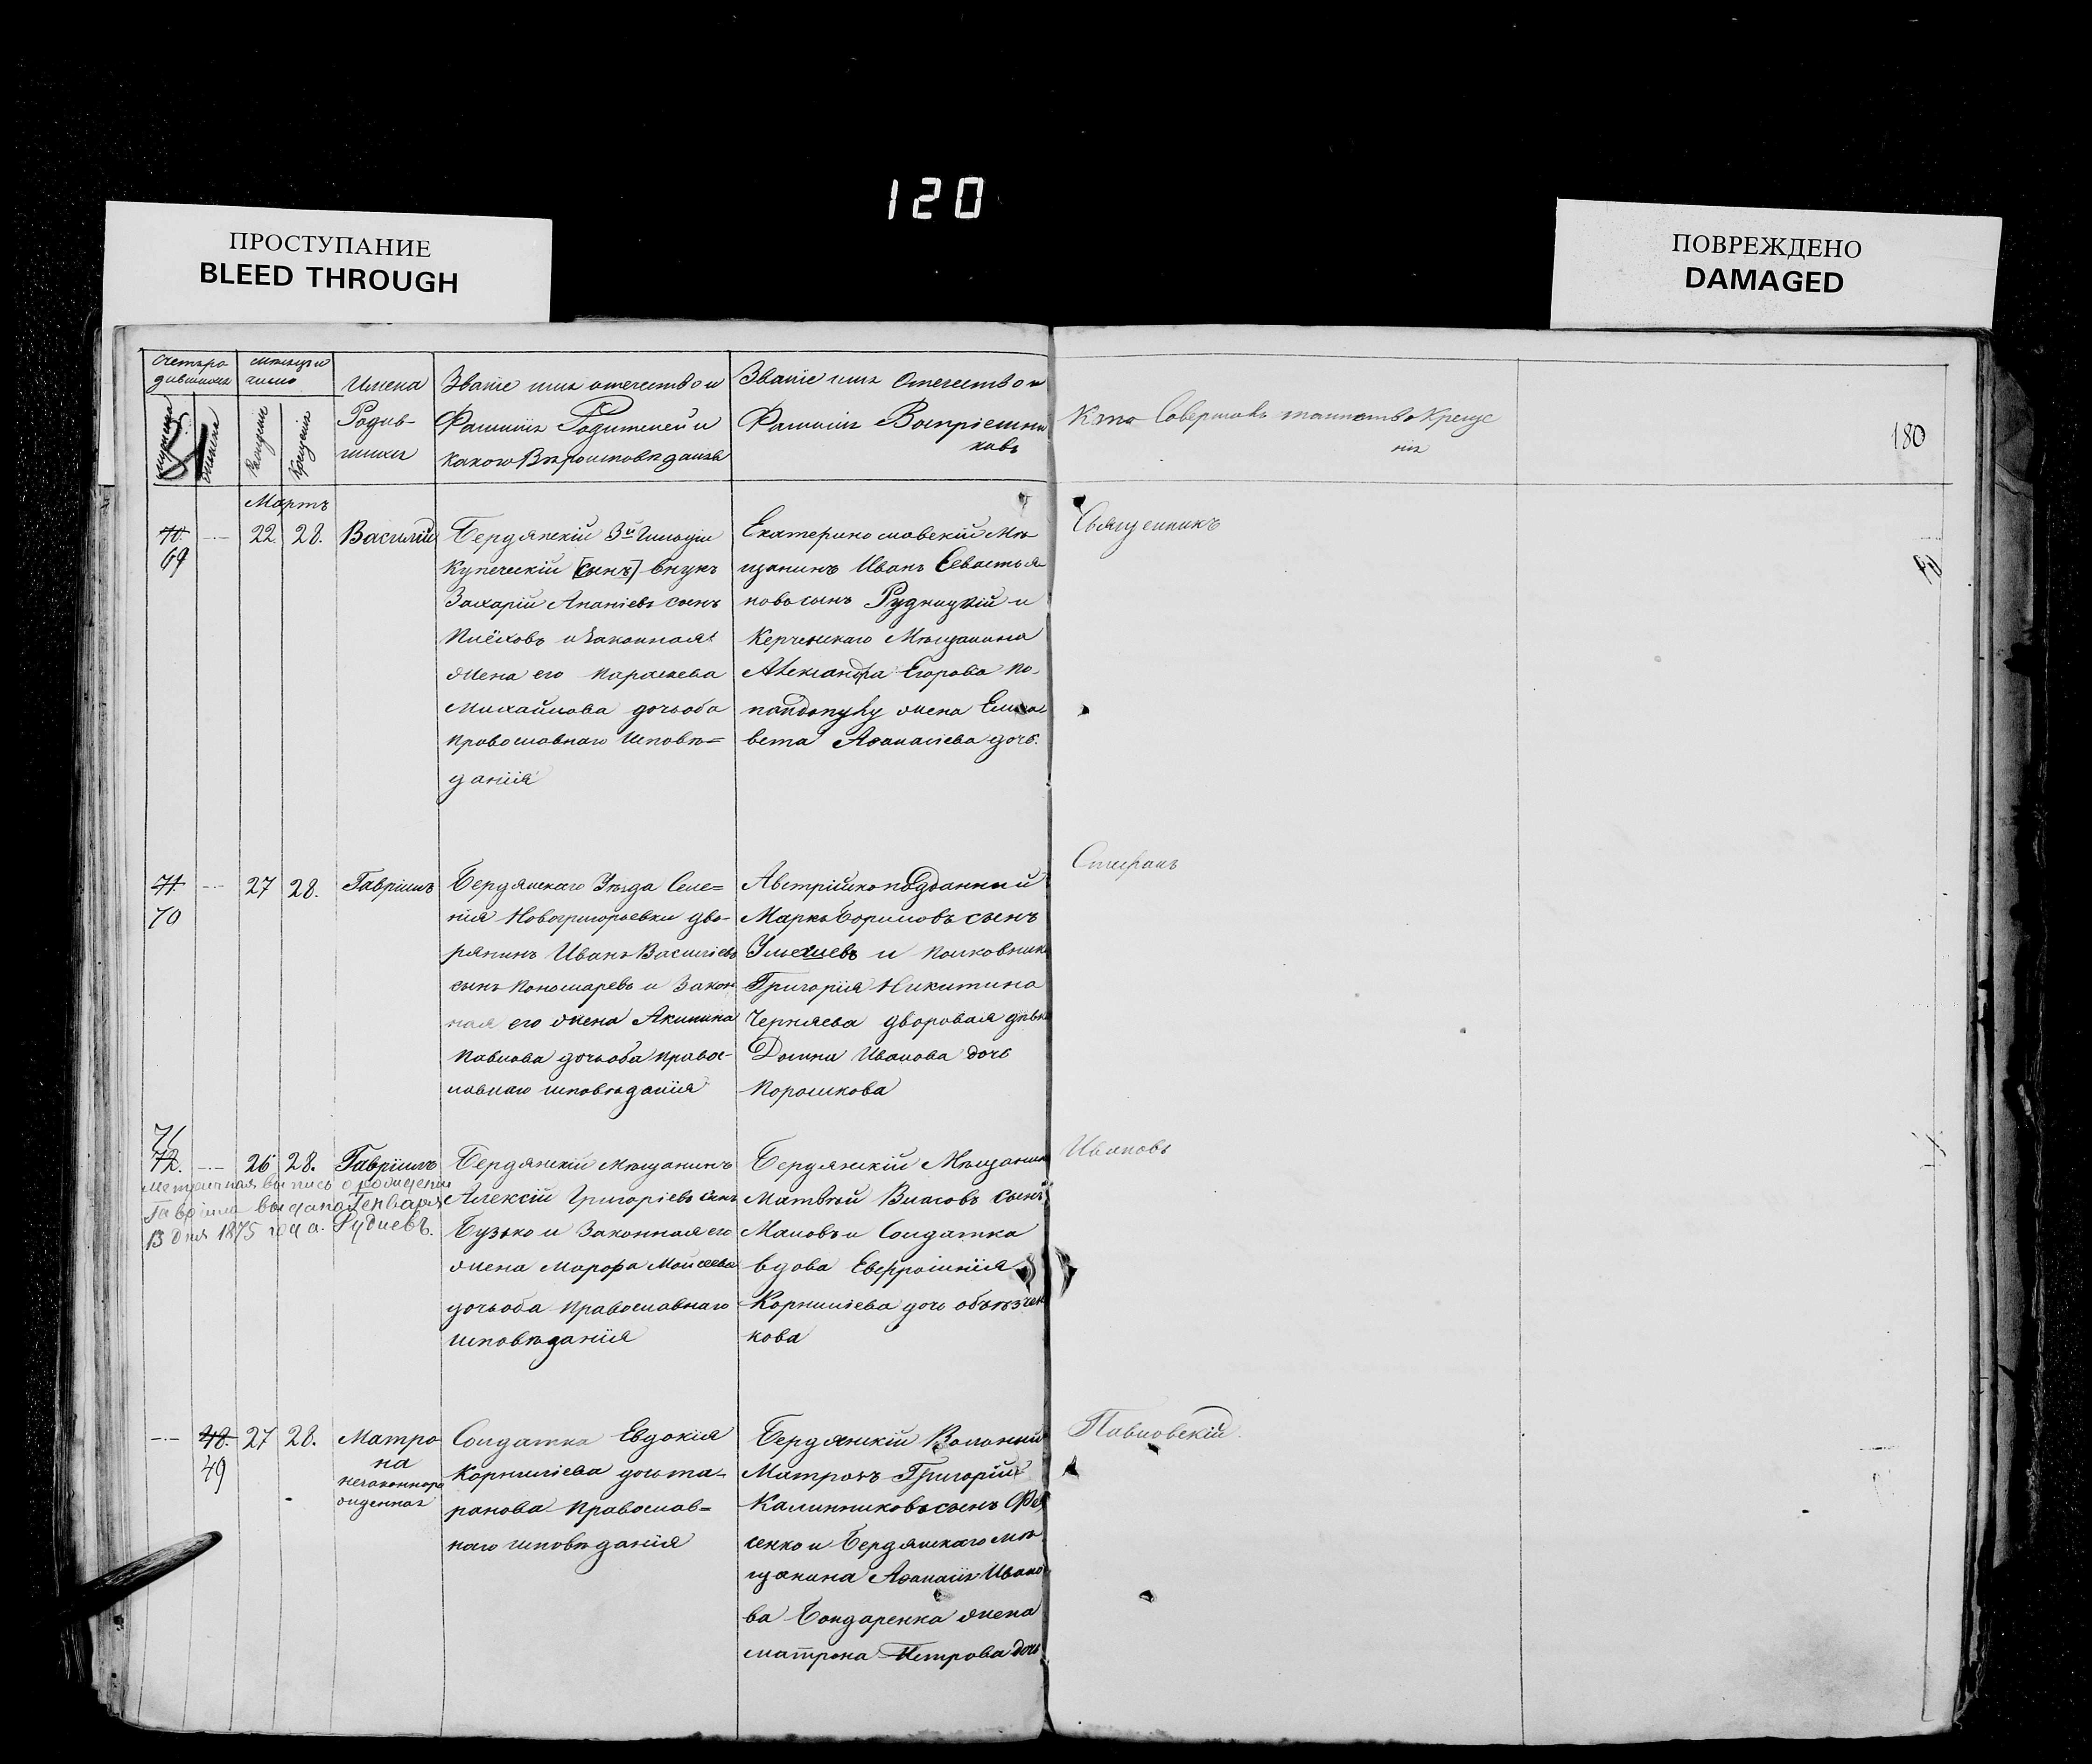 120
ПРОСТУПАНИЕ
BLEED THROUGH
ПОВРЕЖДЕНО
DAMAGED
180
Имена
Родив-
шихся
Званіе имя отечество и
Фамилія Родителей и
какого Вѣроисповѣданія
Званіе имя Отечество и
Фамилія Воспріемни
ковъ
Кто Совершалъ таинство Креще
нія
Мартъ
70.
69
22. 28. Василій
Бердянскій 3й Гильдіи
Купеческій [сынъ] внукъ
Захарій Ананіевъ сынъ
Плёховъ и Законная
жена его Параскева
Михайлова дочь оба
православнаго Исповѣ=
данія
Екатеринославскій Мѣ
щанинъ Иванъ Севастья
новъ сынъ Рудницкій и
Керченскаго Мѣщанина
Александра Егорова По-
пандопулу жена Елиза
вета Аѳанасіева дочь.
Священникъ
71.
70
27 28. Гавріилъ
Бердянскаго Уѣзда Селе=
нія Новогригорьевки дво-
рянинъ Иванъ Василіевъ
сынъ Пономаревъ и Закон
ная его жена Акилина
Павлова дочь оба правос-
лавнаго исповѣданія
Австрійскоподданный
Марко Борисовъ сынъ
и Полковника
Григорія Никитина
Черняева дворовая дѣвка
Домна Иванова дочь
Порошкова
Стефанъ
71
72.
26 28. Гавріилъ
Метричная выпись о рожденіи
Гавріила выдана Генваря
13 дня 1875 года. Рудневъ.
Бердянскій мѣщанинъ
Алексій Григоріевъ сынъ
Бузько и Законная его
жена Марфа Моисеева
дочь оба Православнаго
исповѣданія
Бердянскій Мѣщанинъ
Матвѣй Власовъ сынъ
Маловъ и Солдатка
вдова Евфросинія
Корниліева дочь Объѣзчен
кова
Ивановъ
48.
49
27 28. Матро
на
незаконнорo
жденная
Солдатка Евдокія
Корниліева дочь Та-
ранова Православ=
наго исповѣданія
Бердянскій Вольный
Матрозъ Григорій
Калинниковъ сынъ
сенко и Бердянскаго мѣ
щанина Аѳанасія Ивано
ва Бондаренка жена
Матрона Петрова дочь
Павловскій.